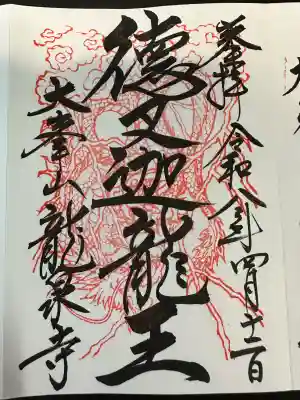 奉拝 令和 年 四月十二日
徳叉迦龍王
大峯山龍泉寺